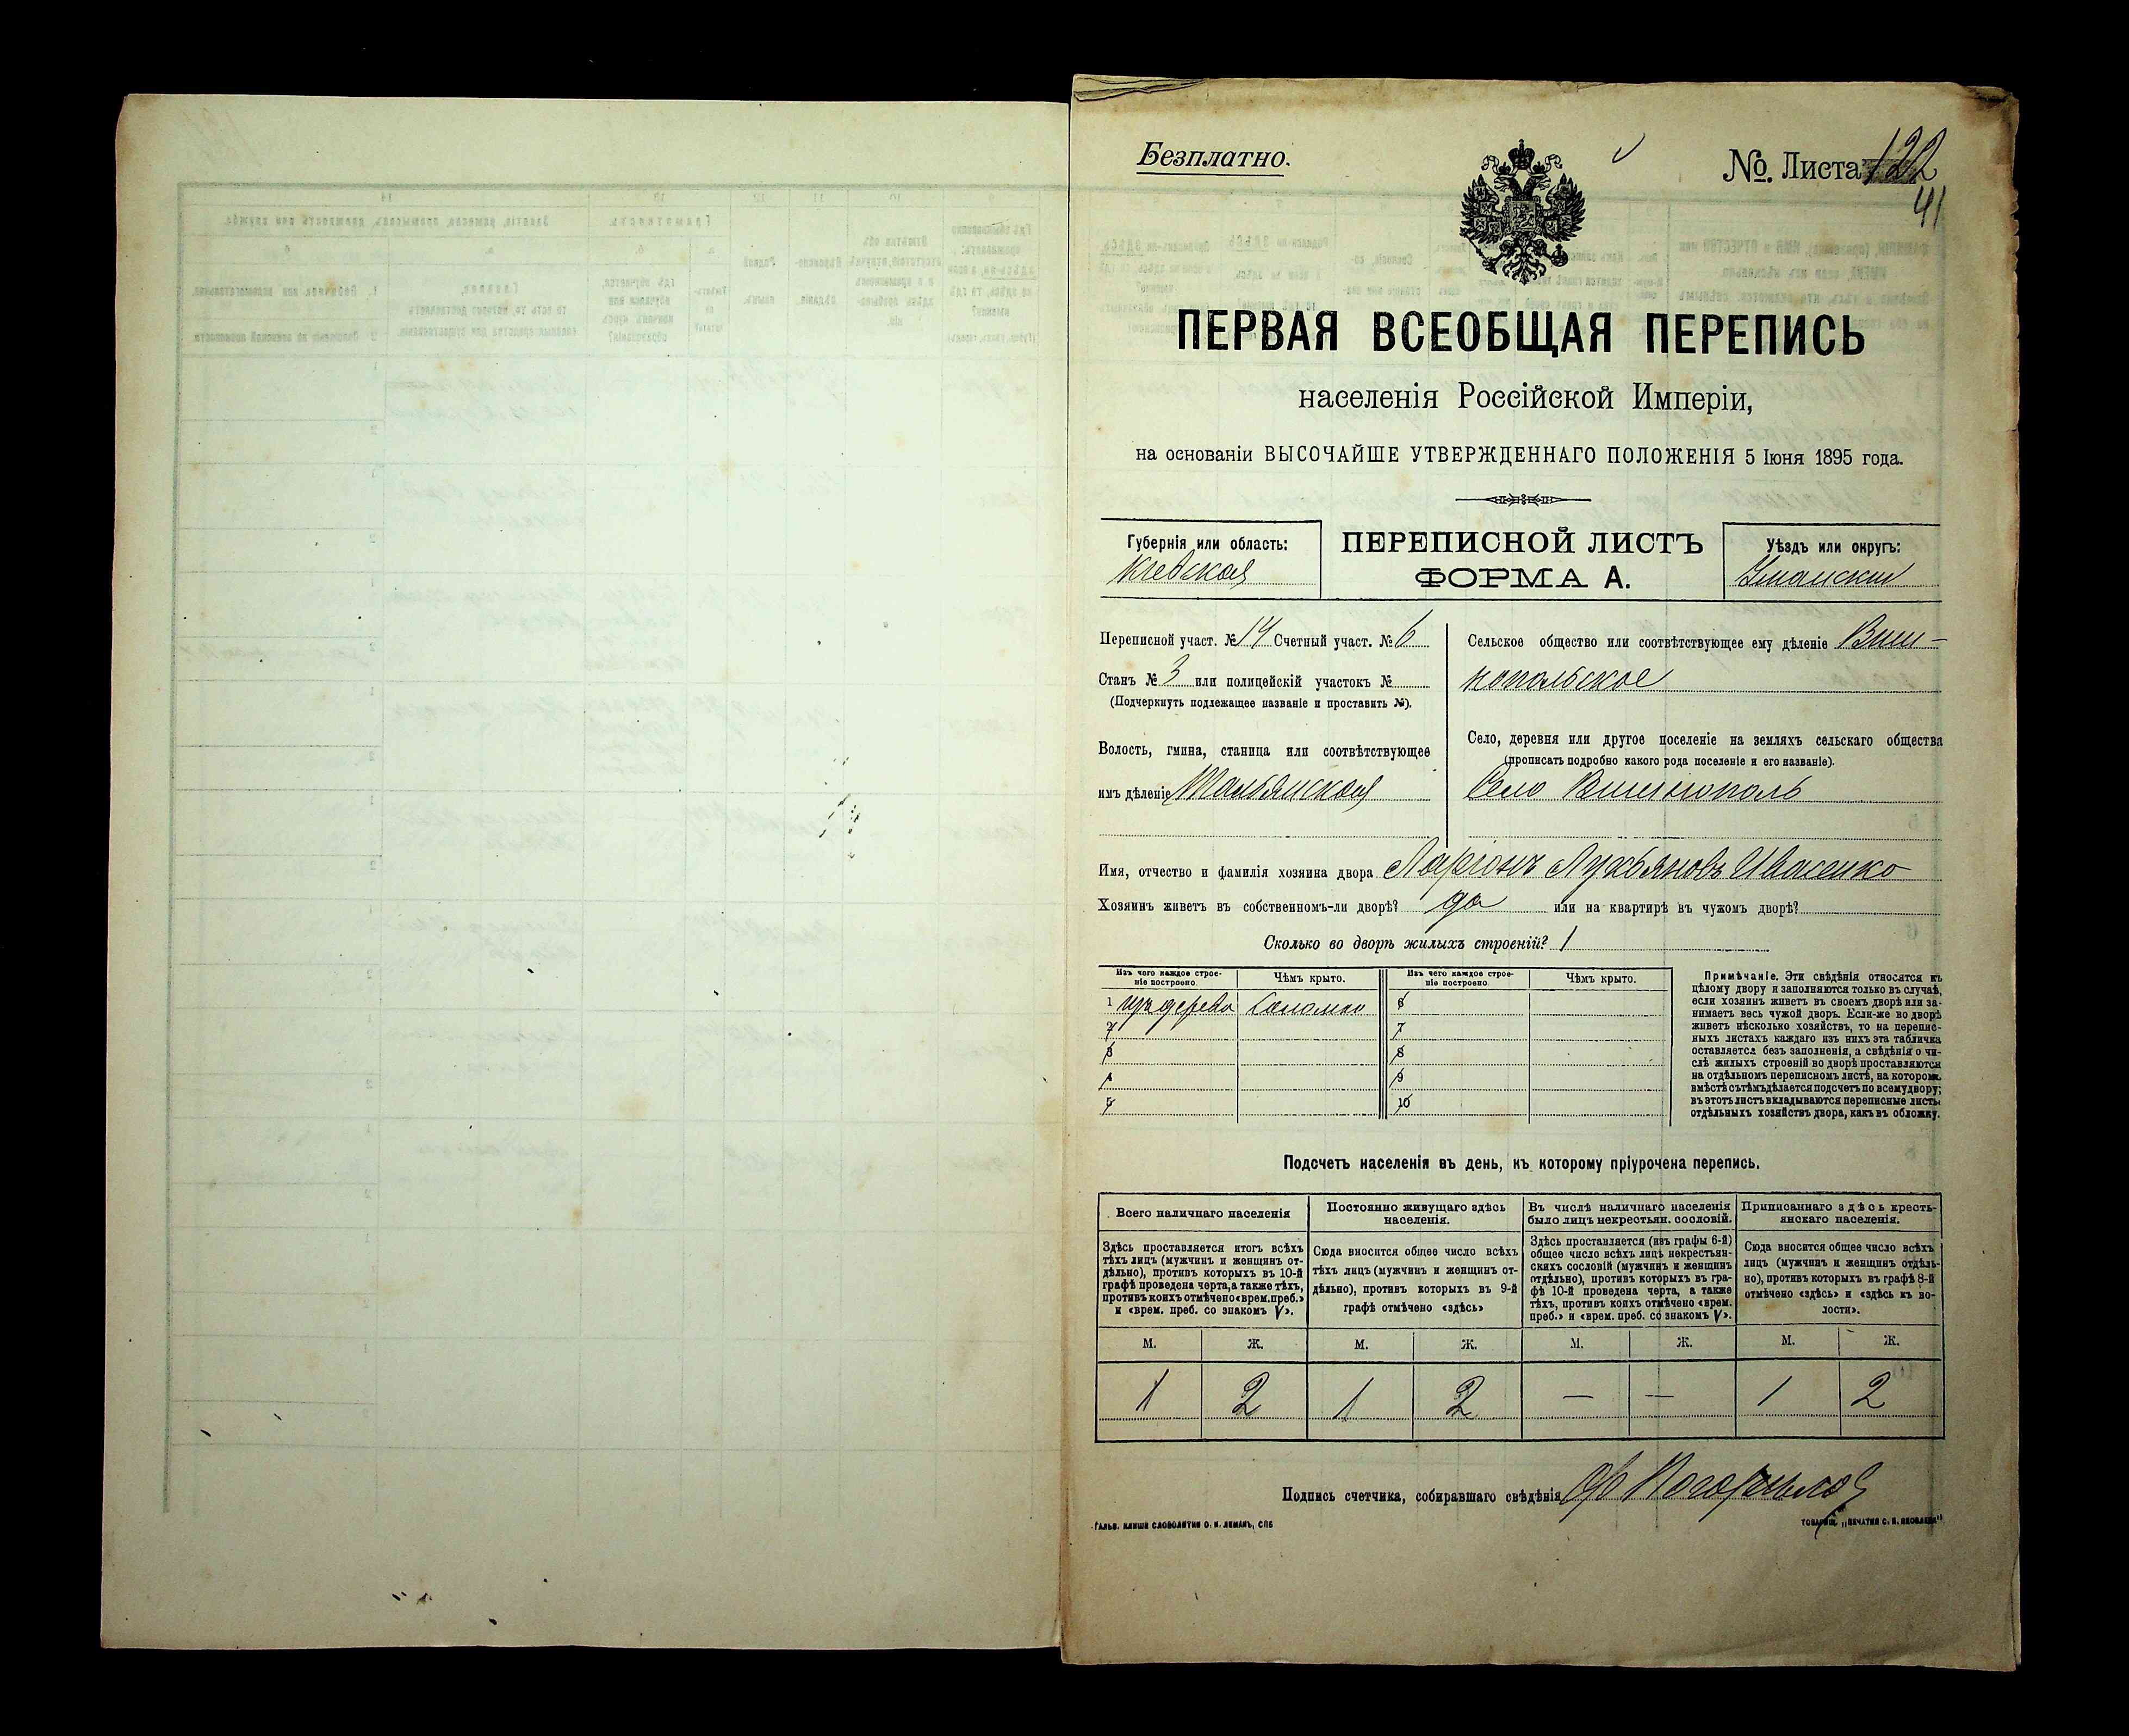 Безплатно.
№. Листа 122
41
ПЕРВАЯ ВСЕОБЩАЯ ПЕРЕПИСЬ
населенія Россійской Имперіи,
на основаніи ВЫСОЧАЙШЕ УТВЕРЖДЕННАГО ПОЛОЖЕНІЯ 5 Іюня 1895 года.
Губернія или область:
Кіевская
ПЕРЕПИСНОЙ ЛИСТЪ
ФОРМА А.
Уѣздъ или округъ:
Уманскій
Переписной участ. № 14 Счетный участ. № 6
Станъ № 3 или полицейскій участокъ №
(Подчеркнуть подлежащее названіе и проставить №).
Волость, гмина, станица или соотвѣтствующее
имъ дѣленіе Тальянская
Сельское общество или соотвѣтствующее ему дѣленіе Виш-
нопольское
Село, деревня или другое поселеніе на земляхъ сельскаго общества
(прописать подробно какого рода поселеніе и его названіе).
Село Вишнополь
Имя, отчество и фамилія хозяина двора Ларіонъ Лукьяновъ Ивасенко
Хозяинъ живетъ въ собственномъ-ли дворѣ? да или на квартирѣ въ чужомъ дворѣ?
Сколько во дворѣ жилыхъ строеній? 1
Изъ чего каждое строе-
ніе построено.
Чѣмъ крыто.
Изъ чего каждое строе-
ніе построено.
Чѣмъ крыто.
1 изъ дерева Соломою 6
2 7
3 8
4 9
5 10
Примѣчаніе. Эти свѣдѣнія относятся къ
цѣлому двору и заполняются только въ случаѣ,
если хозяинъ живетъ въ своемъ дворѣ или за-
нимаетъ весь чужой дворъ. Если-же во дворѣ
живетъ нѣсколько хозяйствъ, то на перепис-
ныхъ листахъ каждаго изъ нихъ эта табличка
оставляется безъ заполненія, а свѣдѣнія о чи-
слѣ жилыхъ строеній во дворѣ проставляются
на отдѣльномъ переписномъ листѣ, на которомъ
вмѣстѣ съ тѣмъ дѣлается подсчетъ по всему двору;
въ этотъ листъ вкладываются переписные листы
отдѣльныхъ хозяйствъ двора, какъ въ обложку.
Подсчетъ населенія въ день, къ которому пріурочена перепись.
Всего наличнаго населенія
Здѣсь проставляется итогъ всѣхъ
тѣхъ лицъ (мужчинъ и женщинъ от-
дѣльно), противъ которыхъ въ 10-й
графѣ проведена черта, а также тѣхъ,
противъ коихъ отмѣчено «врем. преб.»
и «врем. преб. со знакомъ V».
Постоянно живущаго здѣсь
населенія.
Сюда вносится общее число всѣхъ
тѣхъ лицъ (мужчинъ и женщинъ от-
дѣльно), противъ которыхъ въ 9-й
графѣ отмѣчено «здѣсь»
Въ числѣ наличнаго населенія
было лицъ некрестьян. сословій.
Здѣсь проставляется (изъ графы 6-й)
общее число всѣхъ лицъ некрестьян-
скихъ сословій (мужчинъ и женщинъ
отдѣльно), противъ которыхъ въ гра-
фѣ 10-й проведена черта, а также
тѣхъ, противъ коихъ отмѣчено «врем.
преб.» и «врем. преб. со знакомъ V».
Приписаннаго здѣсь кресть-
янскаго населенія.
Сюда вносится общее число всѣхъ
лицъ (мужчинъ и женщинъ отдѣль-
но), противъ которыхъ въ графѣ 8-й
отмѣчено «здѣсь» и «здѣсь къ во-
лости».
М. Ж. М. Ж. М. Ж. М. Ж.
1 2 1 2 — — 1 2
Подпись счетчика, собиравшаго свѣдѣнія
Гальв. клише словолитни О. И. Леманъ, СПБ
Товарищ. „Печатня С. П. Яковлева"